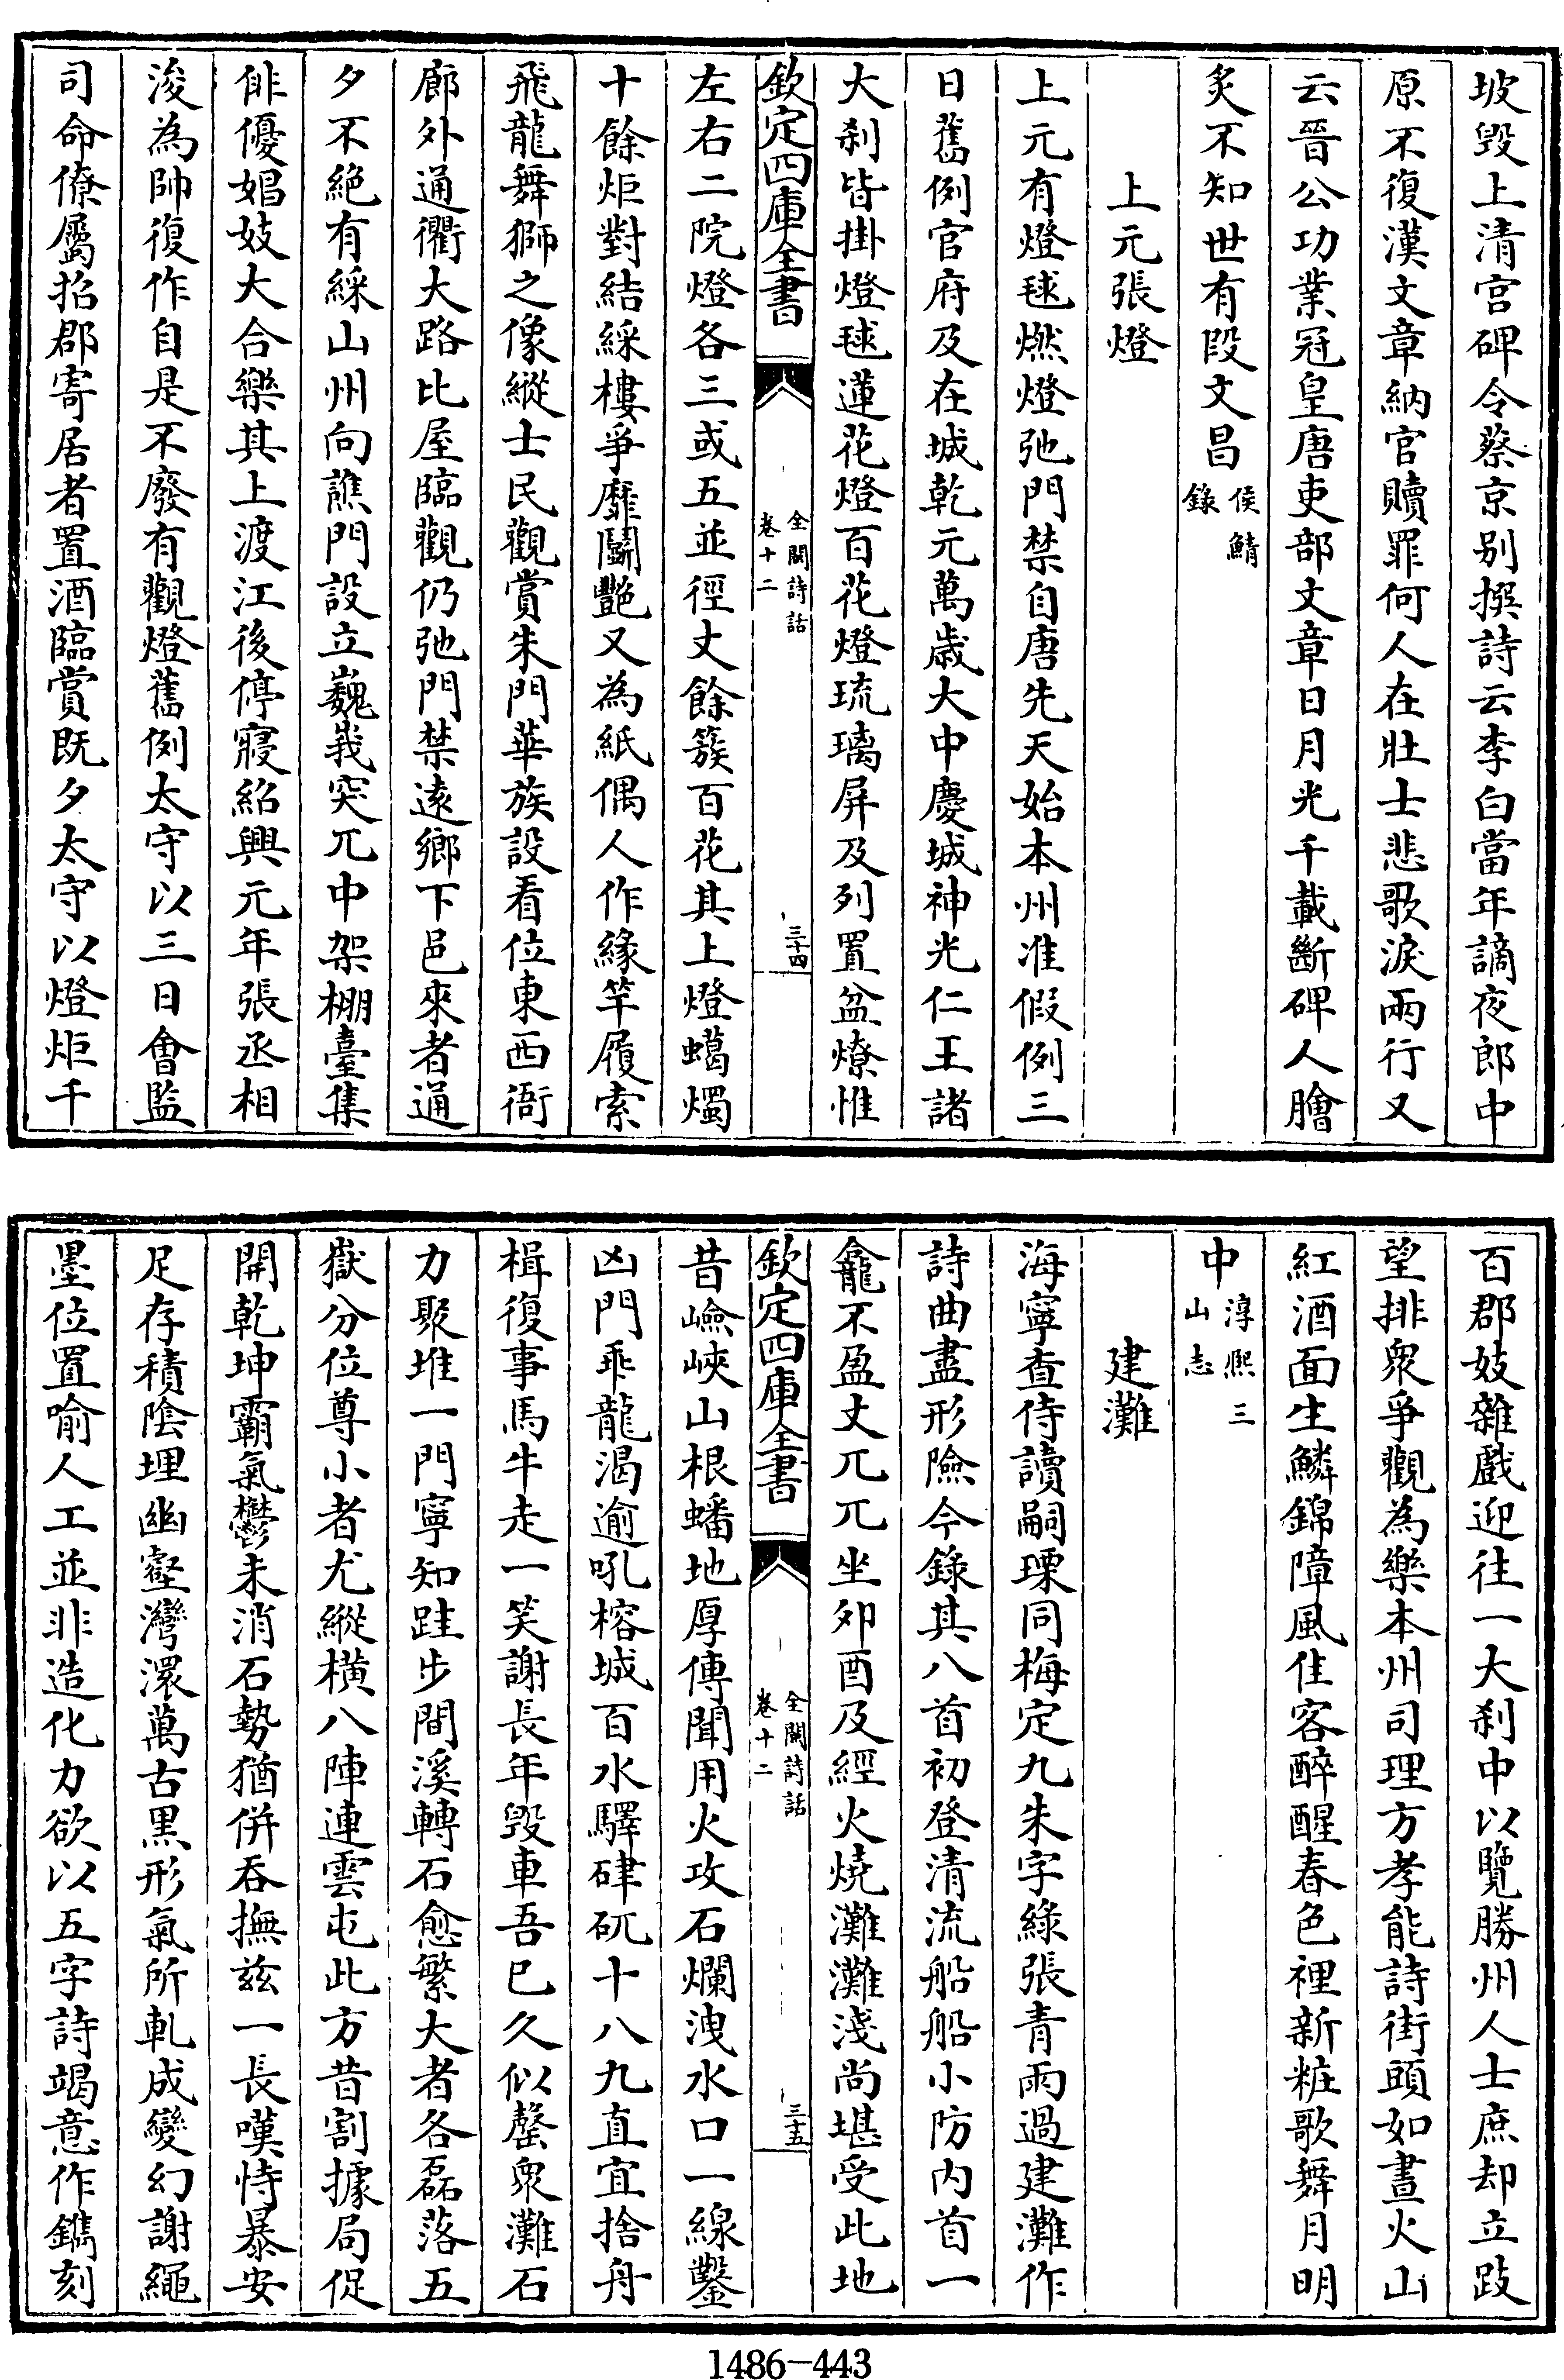 坡毁上清宫碑令蔡京别撰詩云李白當年謫夜郎中
原不復漢文章納官贖罪何人在壯士悲歌淚兩行又
云晉公功業冠皇唐吏部文章日月光千載斷碑人膾
炙不知世有段文昌侯鯖錄
上元張燈
上元有燈毬燃燈弛門禁自唐先天始本州准假例三
日舊例官府及在城乾元萬歲大中慶城神光仁王諸
大刹皆掛燈毬蓮花燈百花燈琉璃屏及列置盆燎惟
欽定四庫全書
全閩詩話
卷十二
三十四
左右二院燈各三或五並徑丈餘簇百花其上燈蠟燭
十餘炬對結綵樓爭靡鬬艷又為紙偶人作緣竿履索
飛龍舞獅之像縱士民觀賞朱門華族設看位東西衙
廊外通衢大路比屋臨觀仍弛門禁逺鄉下邑來者通
夕不絶有綵山州向譙門設立巍峩突兀中架棚臺集
俳優娼妓大合樂其上渡江後停寢紹興元年張丞相
浚為帥復作自是不廢有觀燈舊例太守以三日會監
司命僚屬招郡寄居者置酒臨賞既夕太守以燈炬千
百郡妓雜戲迎往一大刹中以覽勝州人士庶却立跂
望排衆爭觀為樂本州司理方孝能詩街頭如晝火山
紅酒面生鱗錦障風佳客醉醒春色裡新粧歌舞月明
中淳熙三山志
建灘
海寧查侍讀嗣瑮同梅定九朱字綠張青雨過建灘作
詩曲盡形險今錄其八首初登清流船船小防内首一
龕不盈丈兀兀坐夘酉及經火燒灘灘淺尚堪受此地
欽定四庫全書
全閩詩話
卷十二
三十五
昔嶮峽山根蟠地厚傳聞用火攻石爛洩水口一線鑿
凶門乖龍渴逾吼榕城百水驛硉矹十八九直宜捨舟
楫復事馬牛走一笑謝長年毁車吾已久似罄衆灘石
力聚堆一門寧知跬步間溪轉石愈繁大者各磊落五
嶽分位尊小者尤縱橫八陣連雲屯此方昔割據局促
開乾坤霸氣鬱未消石勢猶併吞撫兹一長嘆恃暴安
足存積陰埋幽壑灣澴萬古黑形氣所軋成變幻謝繩
墨位置喻人工並非造化力欲以五字詩竭意作鐫刻
1486-443